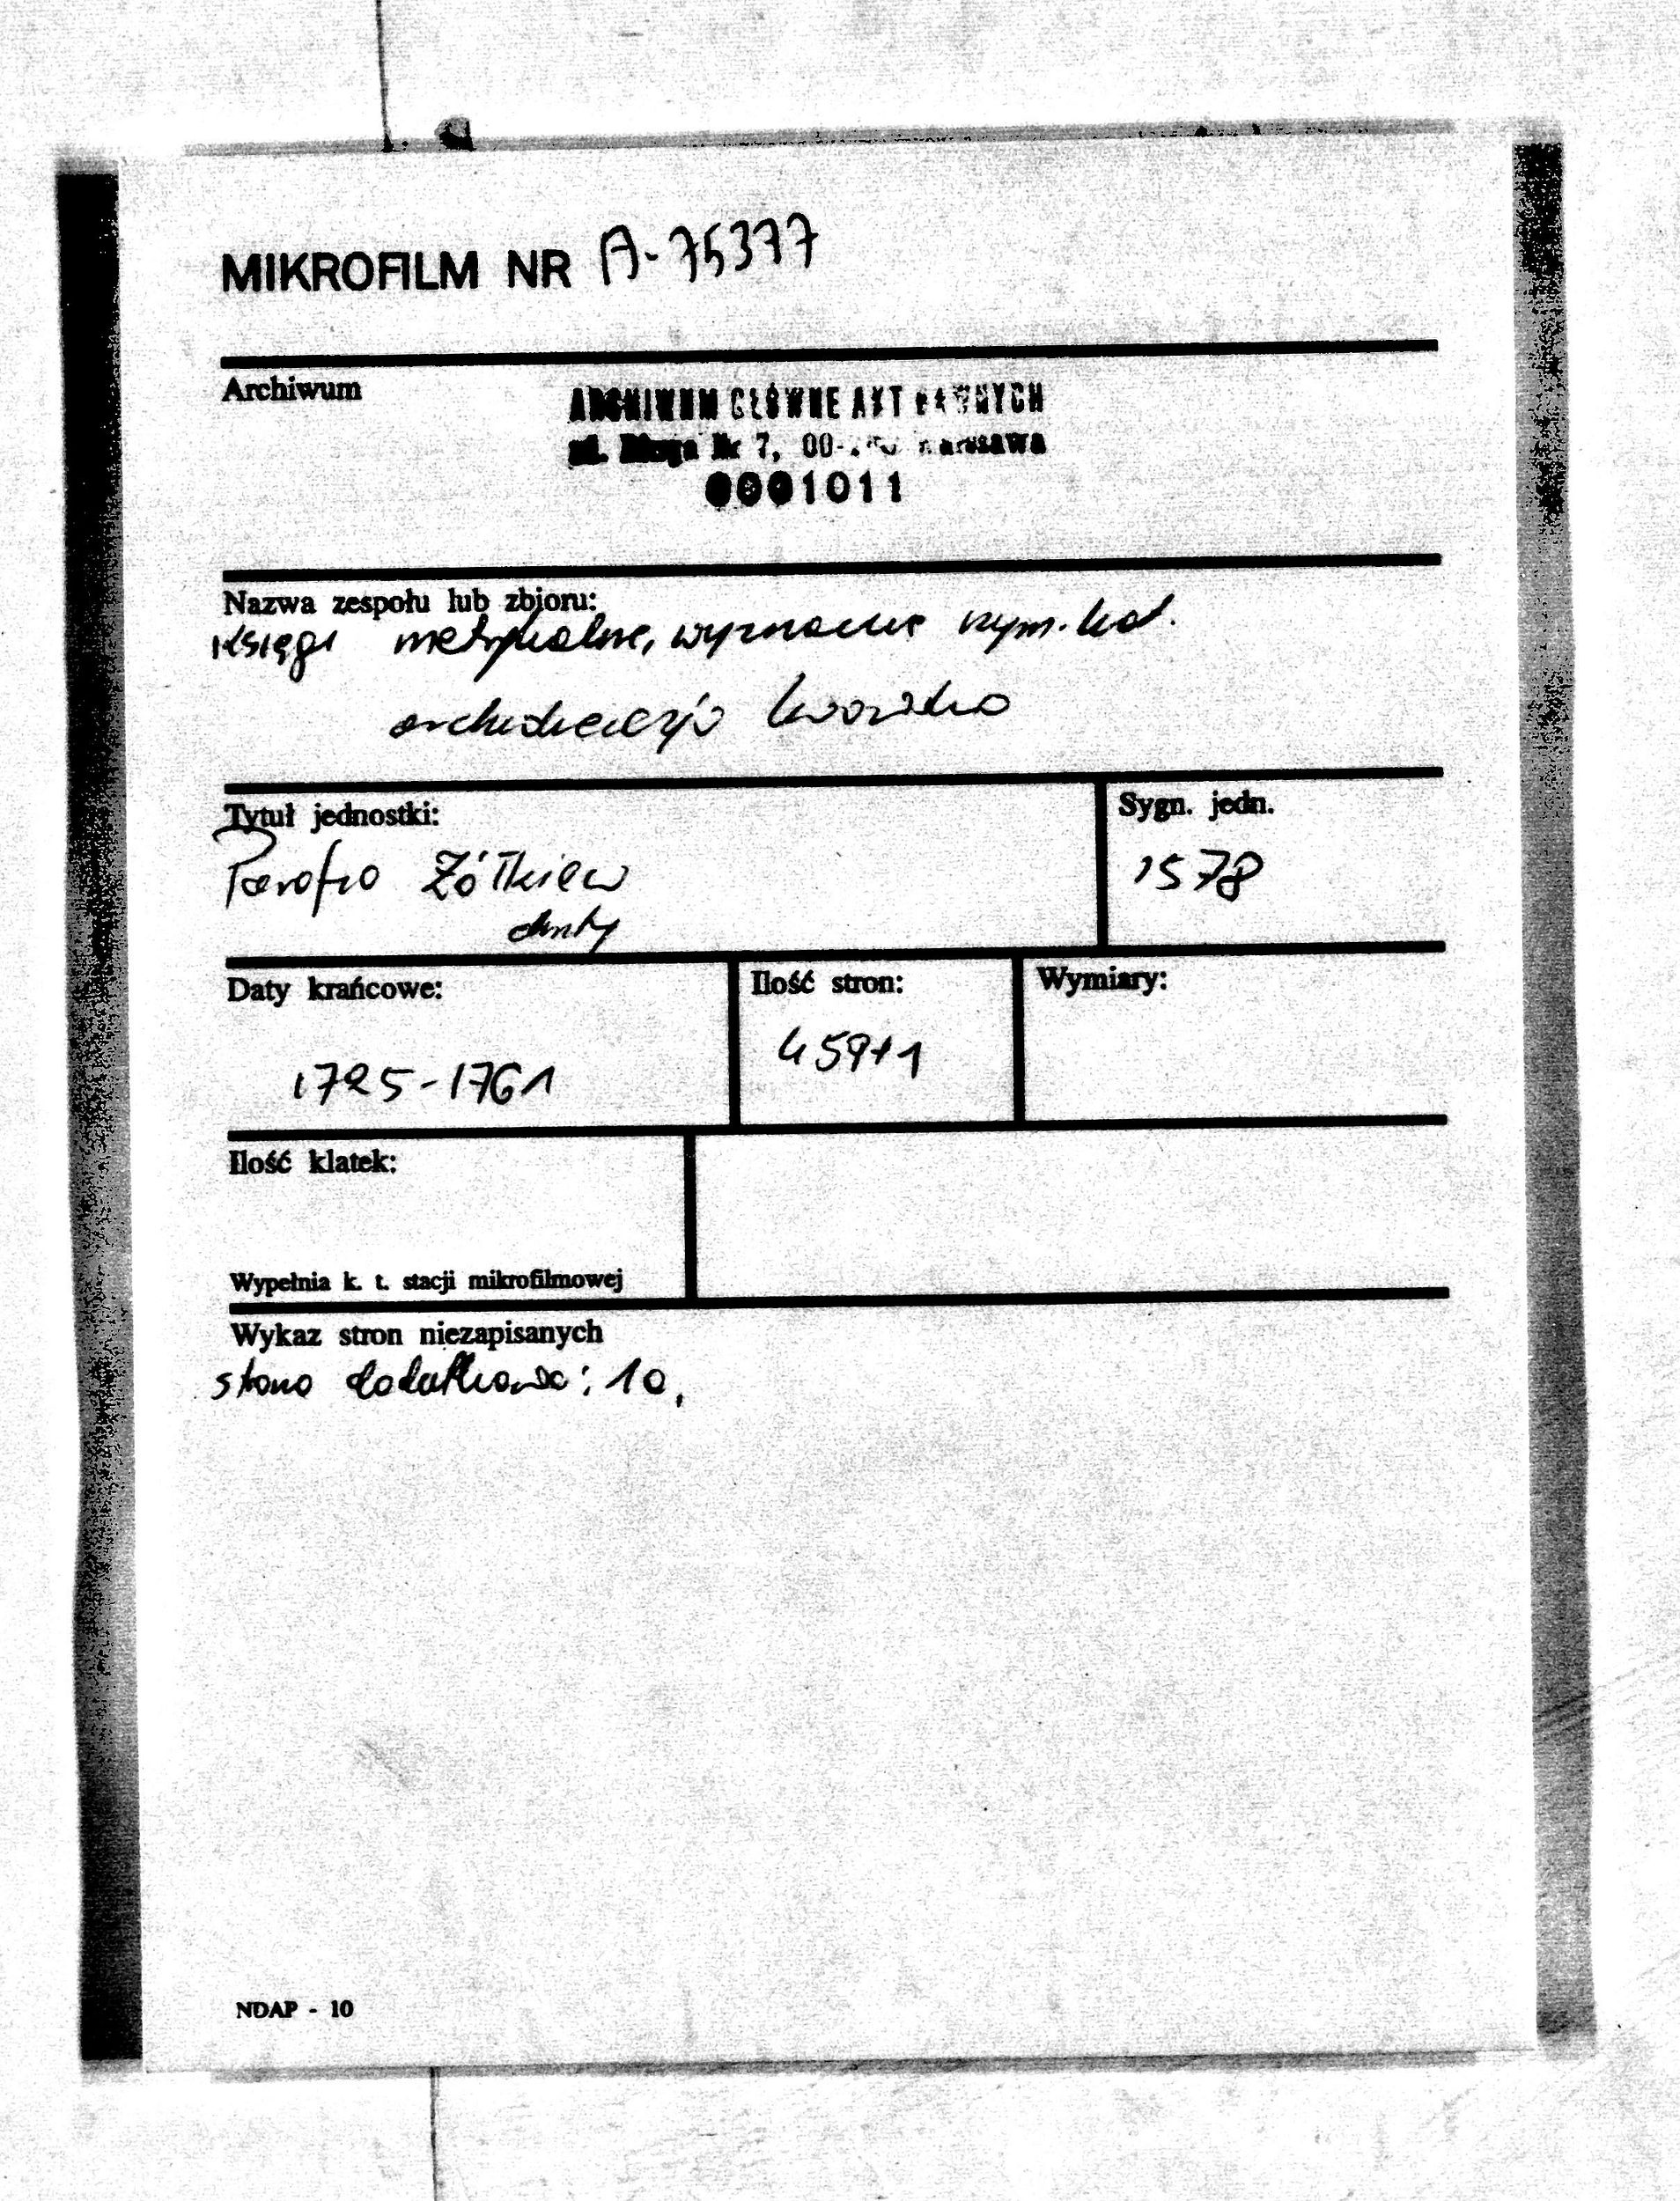 MIKROFILM NR A-75377
Archiwum
ARCHIWUM GŁÓWNE AKT DAWNYCH
ul. Długa Nr 7, 00- Warszawa
0001011
Nazwa zespołu lub zbioru:
Księgi metrykalne, wyznanie rzym. kat.
archidiecezja lwowska
Tytuł jednostki:
Sygn. jedn.
Parafia Żółkiew
1578
śluby
Daty krańcowe:
Ilość stron:
Wymiary:
1725-1761
459+1
Ilość klatek:
Wypełnia k. t. stacji mikrofilmowej
Wykaz stron niezapisanych
strona dodatkowa: 1a,
NDAP - 10